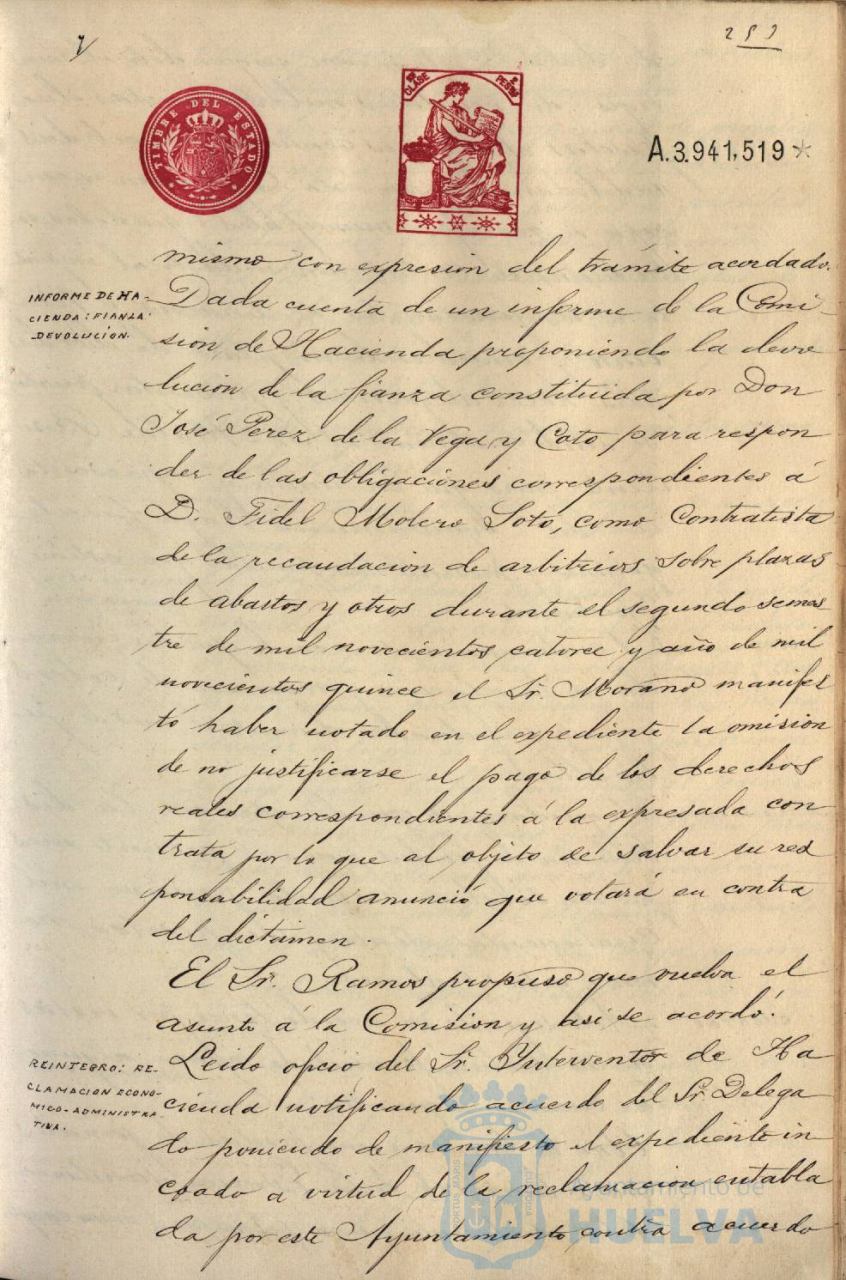 TIMBRE DEL ESTADO
CLASE
PESETAS
A.3.941,519*
mismo con expresión del trámite acordado.
INFORME DE HA-
CIENDA: FIANZA:
DEVOLUCIÓN.
Dada cuenta de un informe de la Comi-
sion de Hacienda proponiendo la devo
lución de la fianza constituida por Don
José Perez de la Vega y Coto para respon
der de las obligaciones correspondientes á
D. Fidel Molero Soto, como Contratista
de la recaudacion de arbitrios sobre plazas
de abastos y otros durante el segundo semes
tre de mil novecientos catorce y año de mil
novecientos quince el Sr. Morano manifes
tó haber notado en el expediente la omision
de no justificarse el pago de los derechos
reales correspondientes á la expresada con
trata por lo que al objeto de salvar su res
ponsabilidad anunció que votará en contra
del dictamen.
El Sr. Ramos propuso que vuelva el
asunto á la Comision y asi se acordó.
REINTEGRO: RE-
CLAMACION ECONO-
MICO-ADMINISTRA
TIVA.
Leido oficio del Sr. Interventor de Ha
cienda notificando acuerdo del Sr. Delega
do poniendo de manifiesto el expediente in
coado á virtud de la reclamacion entabla
da por este Ayuntamiento contra acuerdo
Ayuntamiento de
HUELVA